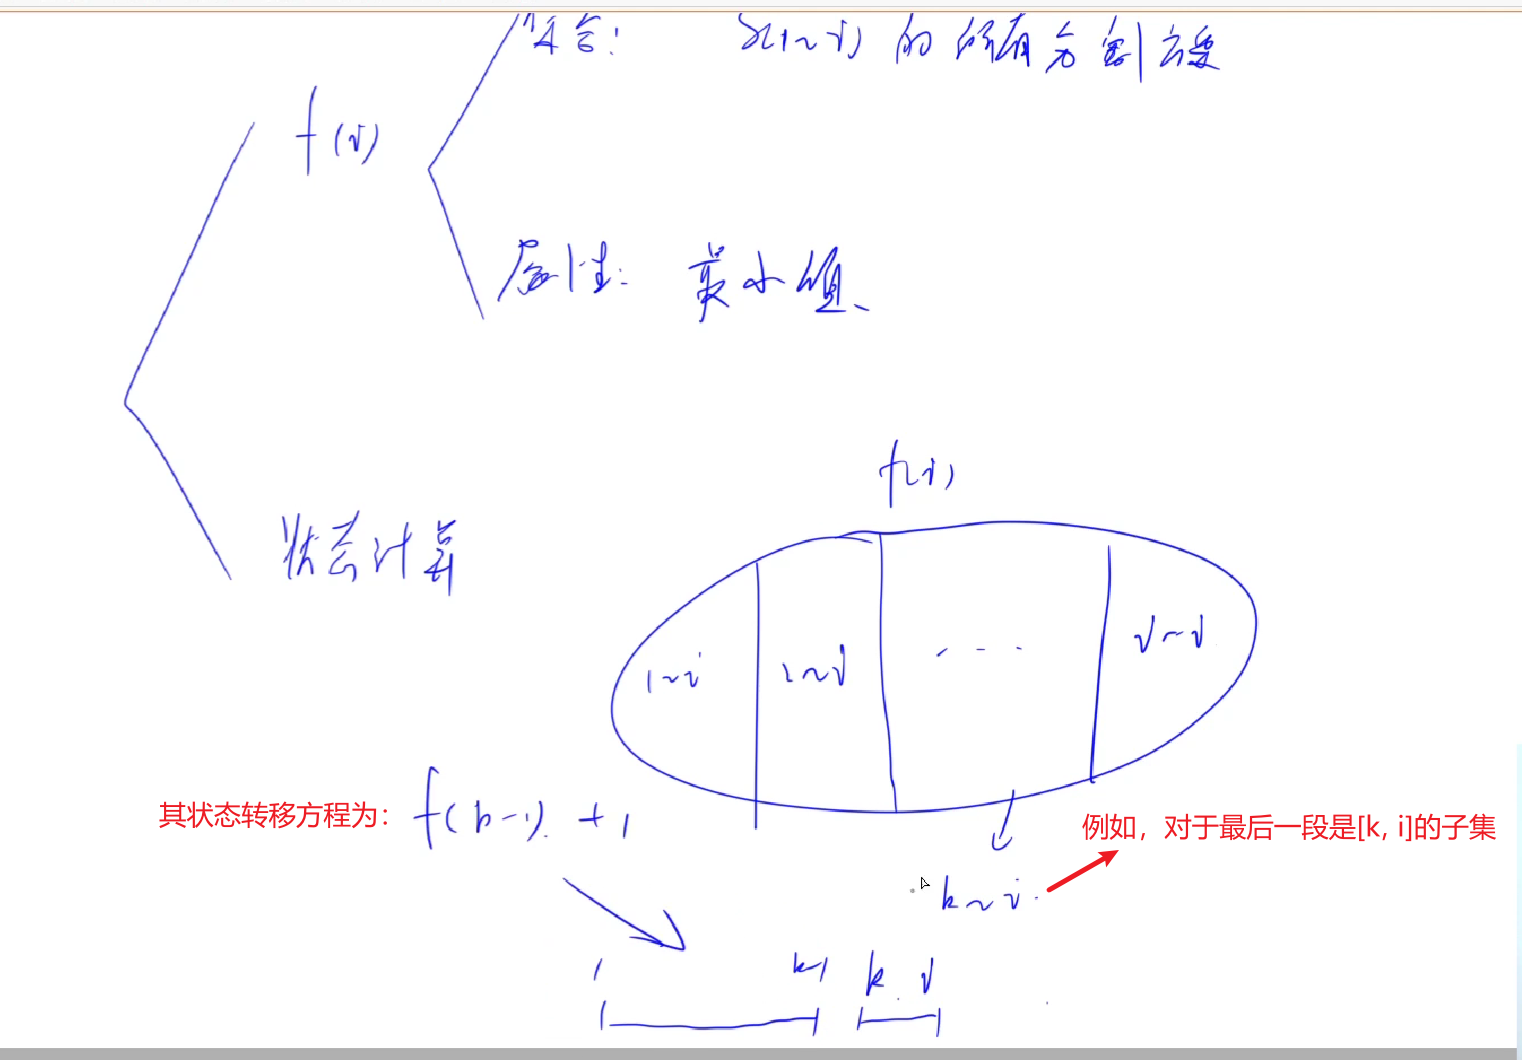 集合： S(1~i) 的所有分割方案
f(i)
属性： 最小值、
f(i)
状态计算
1~i 2~i --- i~i
其状态转移方程为： f(k-1) + 1
例如，对于最后一段是[k, i]的子集
k~i
1 k-1 k i